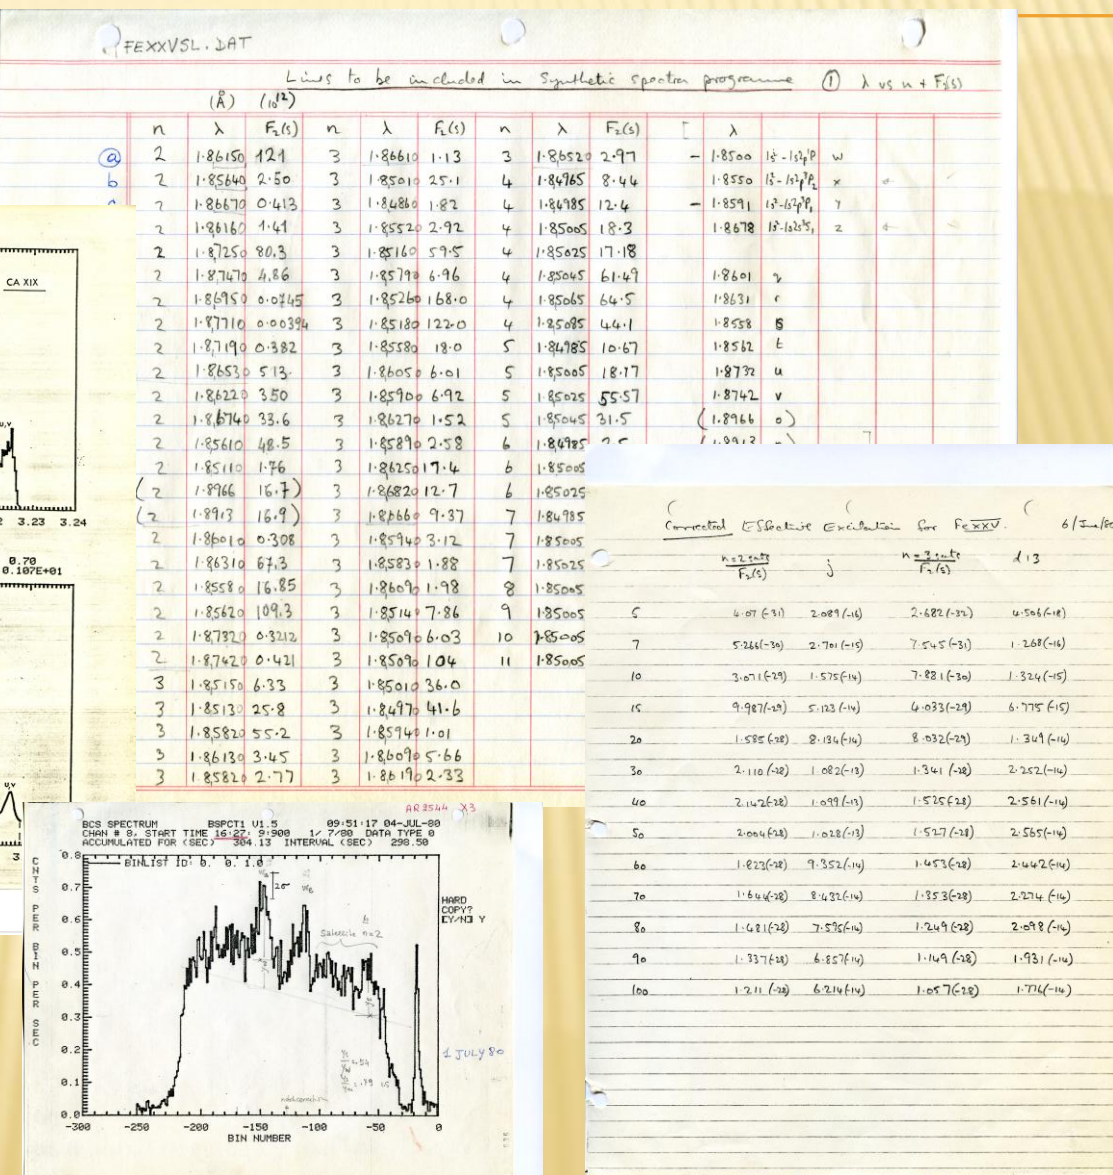 FEXXVSL.DAT
Lines to be included in Synthetic spectra programme ① λ vs n + F₂(s)
(Å) (10¹²)
n λ F₂(s) n λ F₂(s) n λ F₂(s) λ
a 2 1.86150 121 3 1.86610 1.13 3 1.86520 2.97 - 1.8500 1s²-1s2p¹P w
b 2 1.85640 2.50 3 1.85010 25.1 4 1.84965 8.44 1.8550 1s²-1s2p³P₂ x
2 1.86670 0.413 3 1.84860 1.82 4 1.84985 12.4 - 1.8591 1s²-1s2p³P₁ y
2 1.86160 1.41 3 1.85520 2.92 4 1.85005 18.3 1.8678 1s²-1s2s³S₁ z
2 1.87250 80.3 3 1.85160 59.5 4 1.85025 17.18
2 1.87470 4.86 3 1.85790 6.96 4 1.85045 61.49 1.8601 q
2 1.86950 0.0745 3 1.85260 168.0 4 1.85065 64.5 1.8631 r
2 1.87710 0.00394 3 1.85180 122.0 4 1.85085 44.1 1.8558 s
2 1.87190 0.382 3 1.85580 18.0 5 1.84985 10.67 1.8562 t
2 1.86530 513. 3 1.86050 6.01 5 1.85005 18.77 1.8732 u
2 1.86220 350 3 1.85900 6.92 5 1.85025 55.57 1.8742 v
2 1.86740 33.6 3 1.86270 1.52 5 1.85045 31.5 (1.8966 o)
2 1.85610 48.5 3 1.85890 2.58 6 1.84985
2 1.85110 1.76 3 1.86250 17.4 6 1.85005
(2 1.8966 16.7) 3 1.86820 12.7 6 1.85025
(2 1.8913 16.9) 3 1.86660 9.37 7 1.84985
2 1.86010 0.308 3 1.85940 3.12 7 1.85005
2 1.86310 67.3 3 1.85830 1.88 7 1.85025
2 1.85580 16.85 3 1.86090 1.98 8 1.85005
2 1.85620 109.3 3 1.85140 7.86 9 1.85005
2 1.87320 0.3212 3 1.85090 6.03 10 1.85005
2 1.87420 0.421 3 1.85090 104 11 1.85005
3 1.85150 6.33 3 1.85010 36.0
3 1.85130 25.8 3 1.84970 41.6
3 1.85820 55.2 3 1.85940 1.01
3 1.86130 3.45 3 1.86090 5.66
3 1.85820 2.77 3 1.86190 2.33
CA XIX
U,V
3.23 3.24
0.70
0.107E+01
U,V
3
Corrected Effective Excitation for Fe XXV.
n=2 sats F₂(s) j n=3 sats F₂(s) d13
5 4.07(-31) 2.089(-16) 2.682(-32) 4.506(-18)
7 5.266(-30) 2.701(-15) 7.545(-31) 1.268(-16)
10 3.071(-29) 1.575(-14) 7.881(-30) 1.324(-15)
15 9.987(-29) 5.123(-14) 4.033(-29) 6.775(-15)
20 1.585(-28) 8.134(-14) 8.032(-29) 1.349(-14)
30 2.110(-28) 1.082(-13) 1.341(-28) 2.252(-14)
40 2.142(-28) 1.099(-13) 1.525(-28) 2.561(-14)
50 2.004(-28) 1.028(-13) 1.527(-28) 2.565(-14)
60 1.823(-28) 9.352(-14) 1.453(-28) 2.442(-14)
70 1.644(-28) 8.432(-14) 1.353(-28) 2.274(-14)
80 1.481(-28) 7.595(-14) 1.249(-28) 2.098(-14)
90 1.337(-28) 6.857(-14) 1.149(-28) 1.931(-14)
100 1.211(-28) 6.214(-14) 1.057(-28) 1.776(-14)
AR2544 X3
BCS SPECTRUM BSPCT1 V1.5 09:51:17 04-JUL-80
CHAN # 8, START TIME 16:27: 9:900 1/ 7/80 DATA TYPE 0
ACCUMULATED FOR (SEC) 304.13 INTERVAL (SEC) 298.50
BINLIST ID: 0. 0. 1.0
CNTS PER BIN PER SEC
0.8
0.7
0.6
0.5
0.4
0.3
0.2
0.1
0.0
2σ
Satellite n=2
HARD
COPY?
[Y/N] Y
1 JULY 80
-300 -250 -200 -150 -100 -50 0
BIN NUMBER